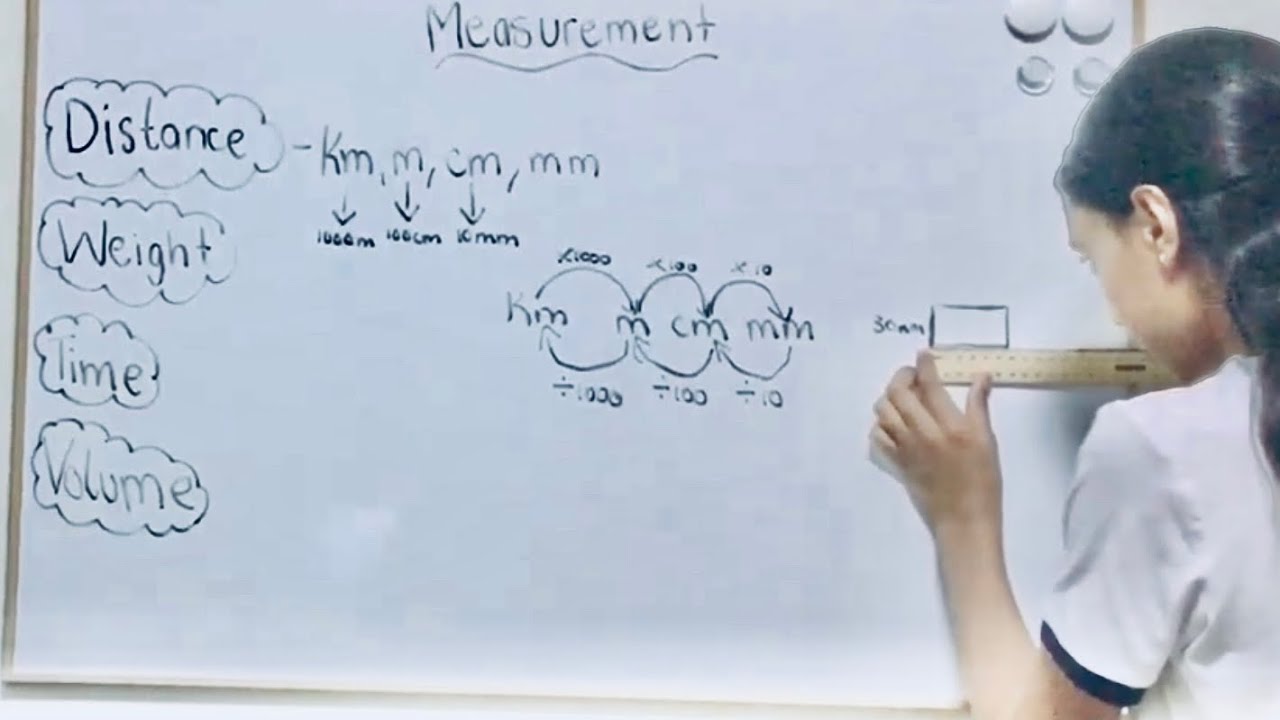 Measurement
Distance - Km, m, cm, mm
1000m 100cm 10mm
Weight
×1000 ×100 ×10
Km m cm mm
÷1000 ÷100 ÷10
30mm
Time
Volume